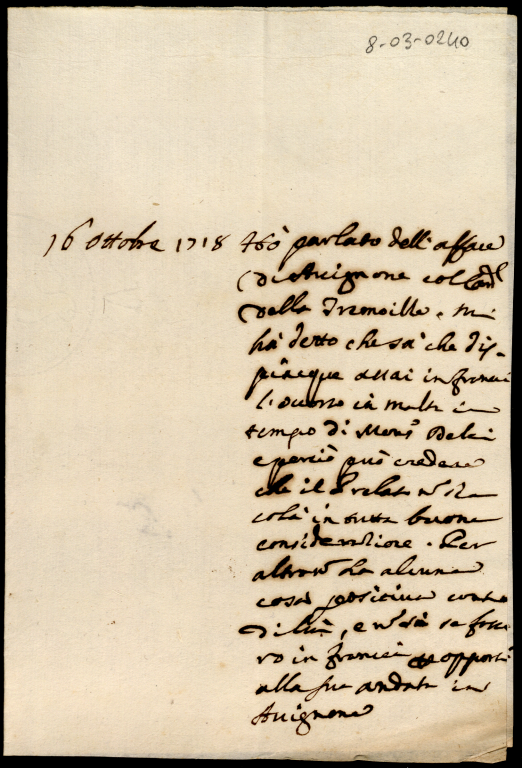 8-03-0240
16 Ottobre 1718 Hò parlato dell'affare
di Avignone col Card.l
della Tremoille, e mi
hà detto che sà che dis-
piacque assai in Franci
l'occorso in Malta in
tempo di Mons.r Delci
e perciò può credere
che il Prelato nō sia
colà in tutta buona
consideratione. Per
altro nō ha alcuna
cosa positiva contro
di lui, e nō sà se fosse
ro in Francia opposti
alla sua andata in
Avignone